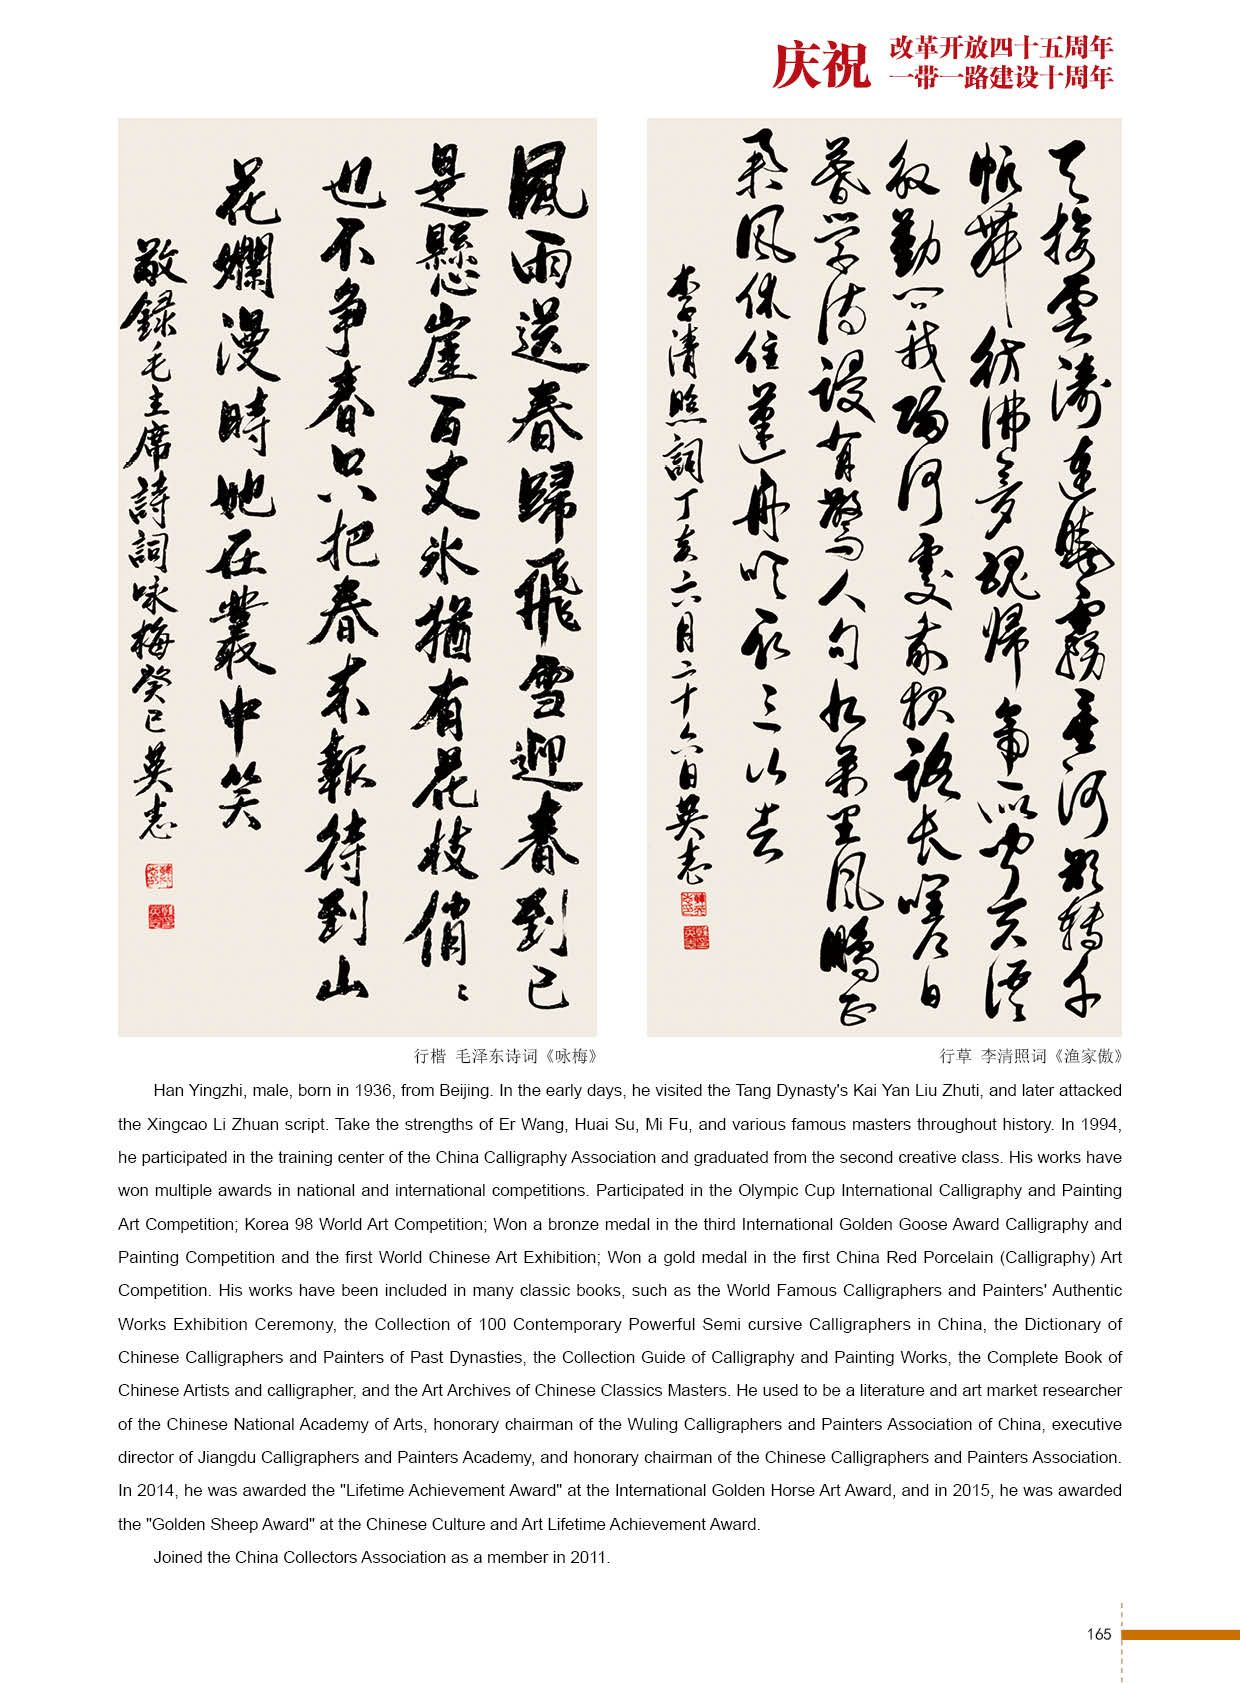 庆祝
改革开放四十五周年
一带一路建设十周年
風雨送春歸飛雪迎春到已
是懸崖百丈冰猶有花枝俏々
也不争春只把春来報待到山
花爛漫時她在叢中笑
敬録毛主席詩詞咏梅癸巳英志
行楷 毛泽东诗词《咏梅》
天接雲濤連曉霧星河欲轉千
帆舞彷彿夢魂歸帝所聞天語
殷勤問我歸何處我報路長嗟日
暮學詩謾有驚人句九萬里風鵬正
舉風休住蓬舟吹取三山去
李清照詞丁亥六月二十六日英志
行草 李清照词《渔家傲》
Han Yingzhi, male, born in 1936, from Beijing. In the early days, he visited the Tang Dynasty's Kai Yan Liu Zhuti, and later attacked
the Xingcao Li Zhuan script. Take the strengths of Er Wang, Huai Su, Mi Fu, and various famous masters throughout history. In 1994,
he participated in the training center of the China Calligraphy Association and graduated from the second creative class. His works have
won multiple awards in national and international competitions. Participated in the Olympic Cup International Calligraphy and Painting
Art Competition; Korea 98 World Art Competition; Won a bronze medal in the third International Golden Goose Award Calligraphy and
Painting Competition and the first World Chinese Art Exhibition; Won a gold medal in the first China Red Porcelain (Calligraphy) Art
Competition. His works have been included in many classic books, such as the World Famous Calligraphers and Painters' Authentic
Works Exhibition Ceremony, the Collection of 100 Contemporary Powerful Semi cursive Calligraphers in China, the Dictionary of
Chinese Calligraphers and Painters of Past Dynasties, the Collection Guide of Calligraphy and Painting Works, the Complete Book of
Chinese Artists and calligrapher, and the Art Archives of Chinese Classics Masters. He used to be a literature and art market researcher
of the Chinese National Academy of Arts, honorary chairman of the Wuling Calligraphers and Painters Association of China, executive
director of Jiangdu Calligraphers and Painters Academy, and honorary chairman of the Chinese Calligraphers and Painters Association.
In 2014, he was awarded the "Lifetime Achievement Award" at the International Golden Horse Art Award, and in 2015, he was awarded
the "Golden Sheep Award" at the Chinese Culture and Art Lifetime Achievement Award.
Joined the China Collectors Association as a member in 2011.
165